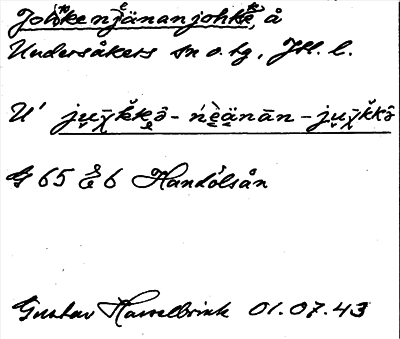 Johkenjänanjohke, å
Undersåkers sn o. tg, Jtl. l.
U' jụχ̄k̆kə̂ - ńèänān - jụχ̄k̆kə̂
G 65 E 6 Handölsån
Gustav Hasselbrink 01.07.43